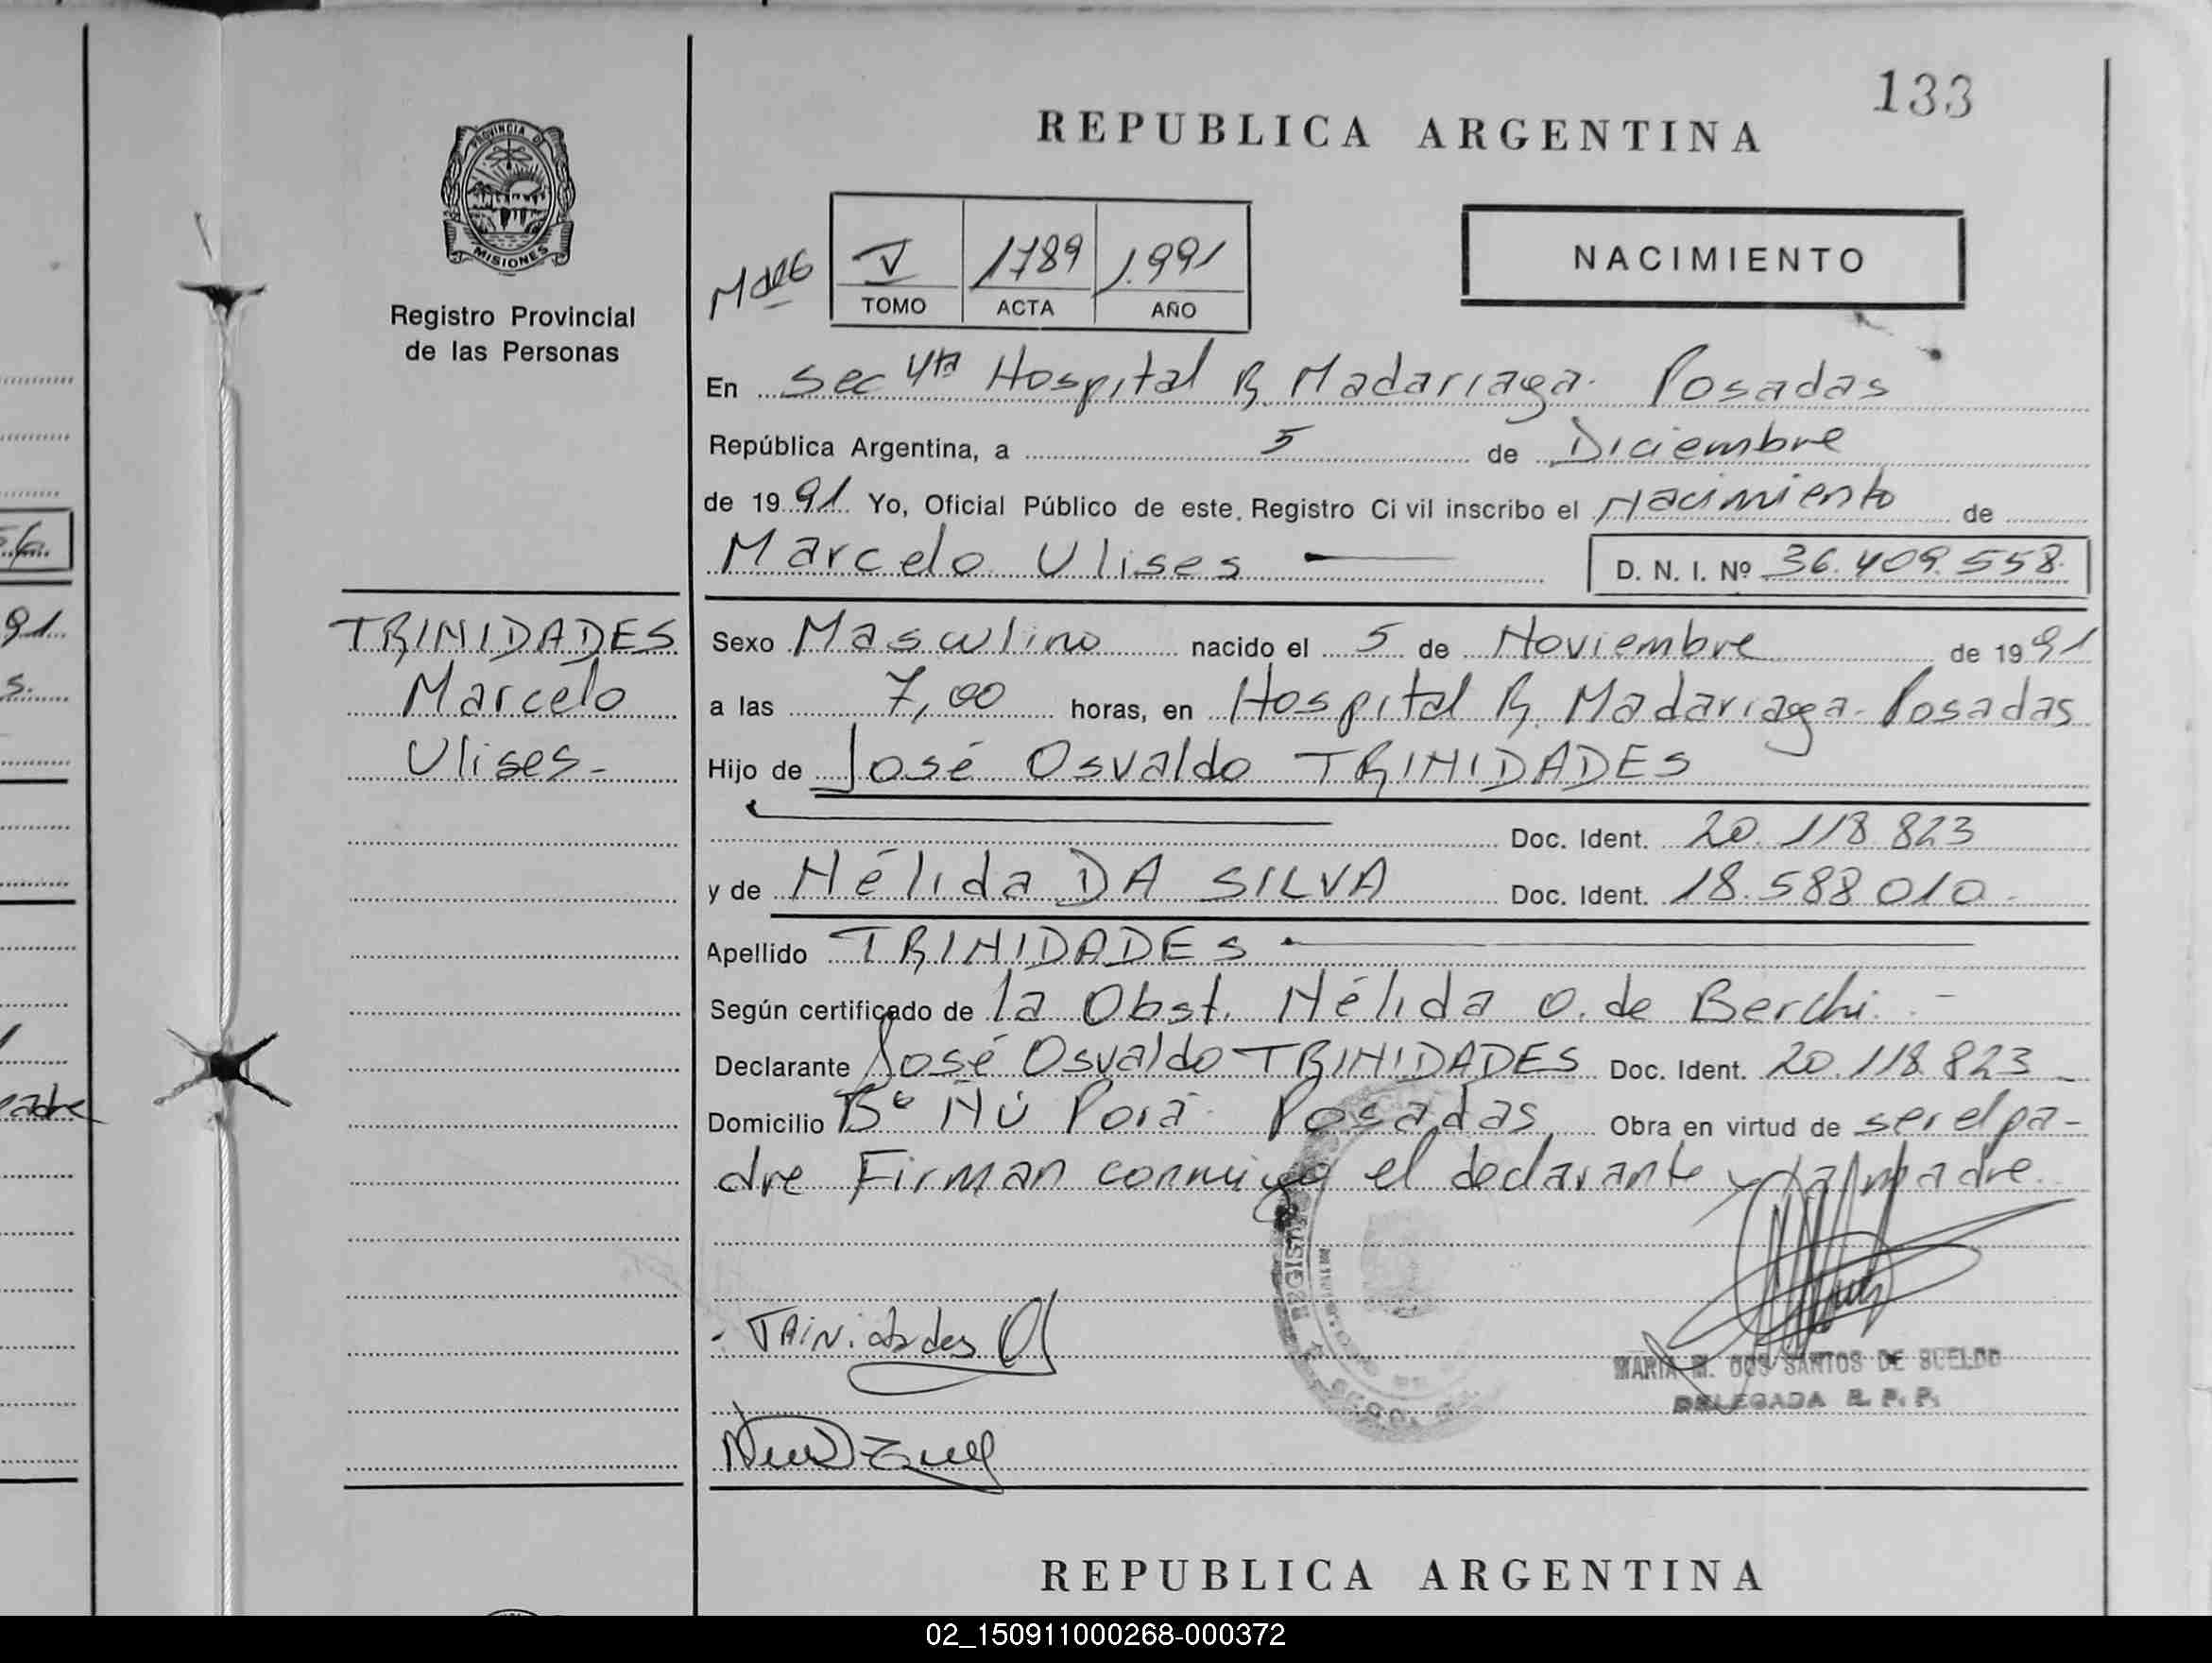 133
REPUBLICA ARGENTINA
PROVINCIA DE
MISIONES
Registro Provincial
de las Personas
V 1789 1.991
TOMO ACTA AÑO
NACIMIENTO
En Sec 4ta Hospital R. Madariaga. Posadas
República Argentina, a 5 de Diciembre
de 1991 Yo, Oficial Público de este Registro Civil inscribo el Nacimiento de
Marcelo Ulises D. N. I. Nº 36.409.558.
TRINIDADES
Marcelo
Ulises-
Sexo Masculino nacido el 5 de Noviembre de 1991
a las 7,00 horas, en Hospital R. Madariaga. Posadas
Hijo de José Osvaldo TRINIDADES
Doc. Ident. 20.118.823
y de Nélida DA SILVA Doc. Ident. 18.588.010.-
Apellido TRINIDADES
Según certificado de la Obst. Nélida O. de Berchi.-
Declarante José Osvaldo TRINIDADES Doc. Ident. 20.118.823-
Domicilio Bº Ñú Porá. Posadas Obra en virtud de ser el pa-
dre Firman conmigo el declarante y la madre.
Trinidades O
MARIA M. DOS SANTOS DE SUELDO
DELEGADA R. P. P.
REPUBLICA ARGENTINA
91
s.
adre
02_150911000268-000372